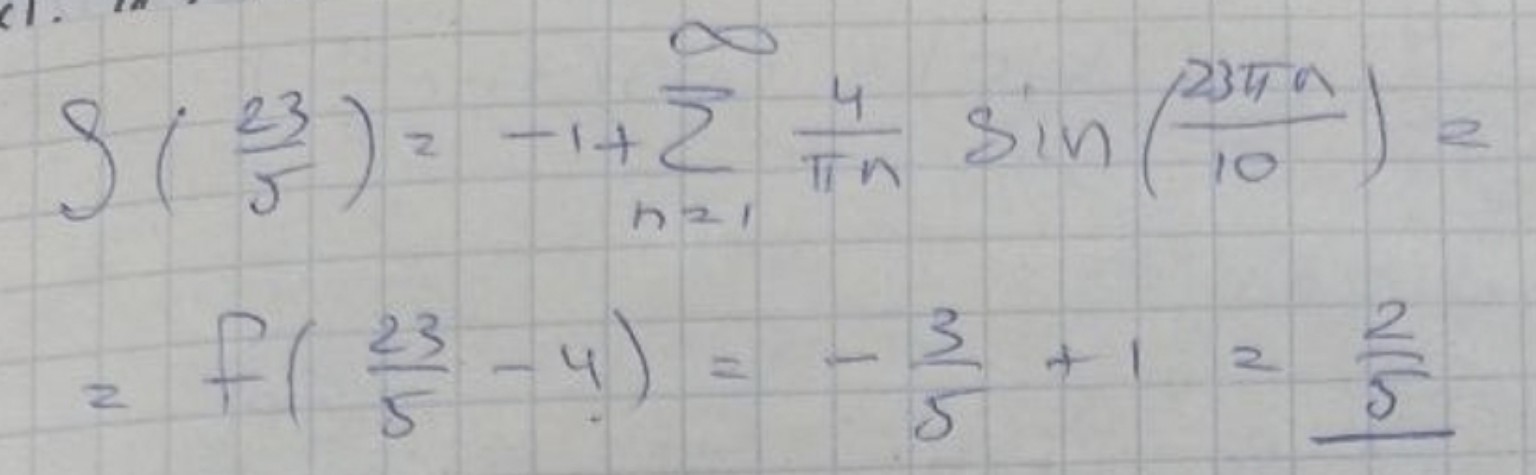 S(23/5) = -1 + ∑_{n=1}^{∞} 4/(πn) sin(23πn/10) =
= f(23/5 - 4) = -3/5 + 1 = 2/5